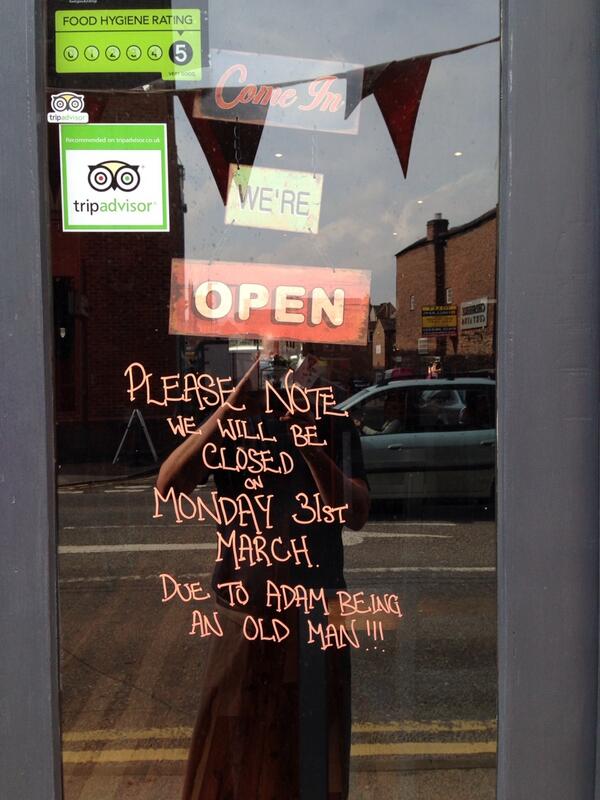 FOOD HYGIENE RATING
0 1 2 3 4 5
VERY GOOD
tripadvisor
Recommended on tripadvisor.co.uk
tripadvisor
Come In
WE'RE
OPEN
PLEASE NOTE
WE WILL BE
CLOSED
ON
MONDAY 31ST
MARCH.
DUE TO ADAM BEING
AN OLD MAN!!!